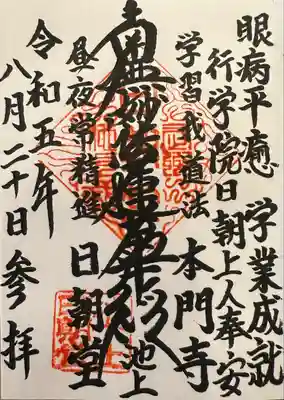 眼病平癒 学業成就
行学院日朝上人奉安
学習我道法 本門寺
池上
南無妙法蓮華経
昼夜常精進 日朝堂
令和五年
八月二十日参拝